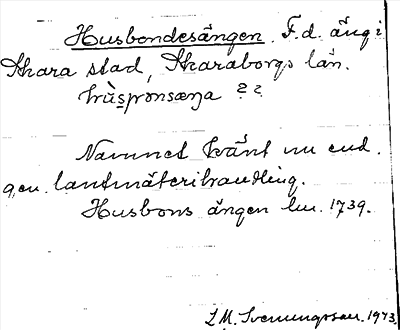 Husbondesängen. F.d. äng i
Skara stad, Skaraborgs län.
hùspronsæŋa ??
Namnet känt nu end.
gen. lantmäterihandling.
Husbons ängen lm. 1739.
L M. Svenungsson. 1973.